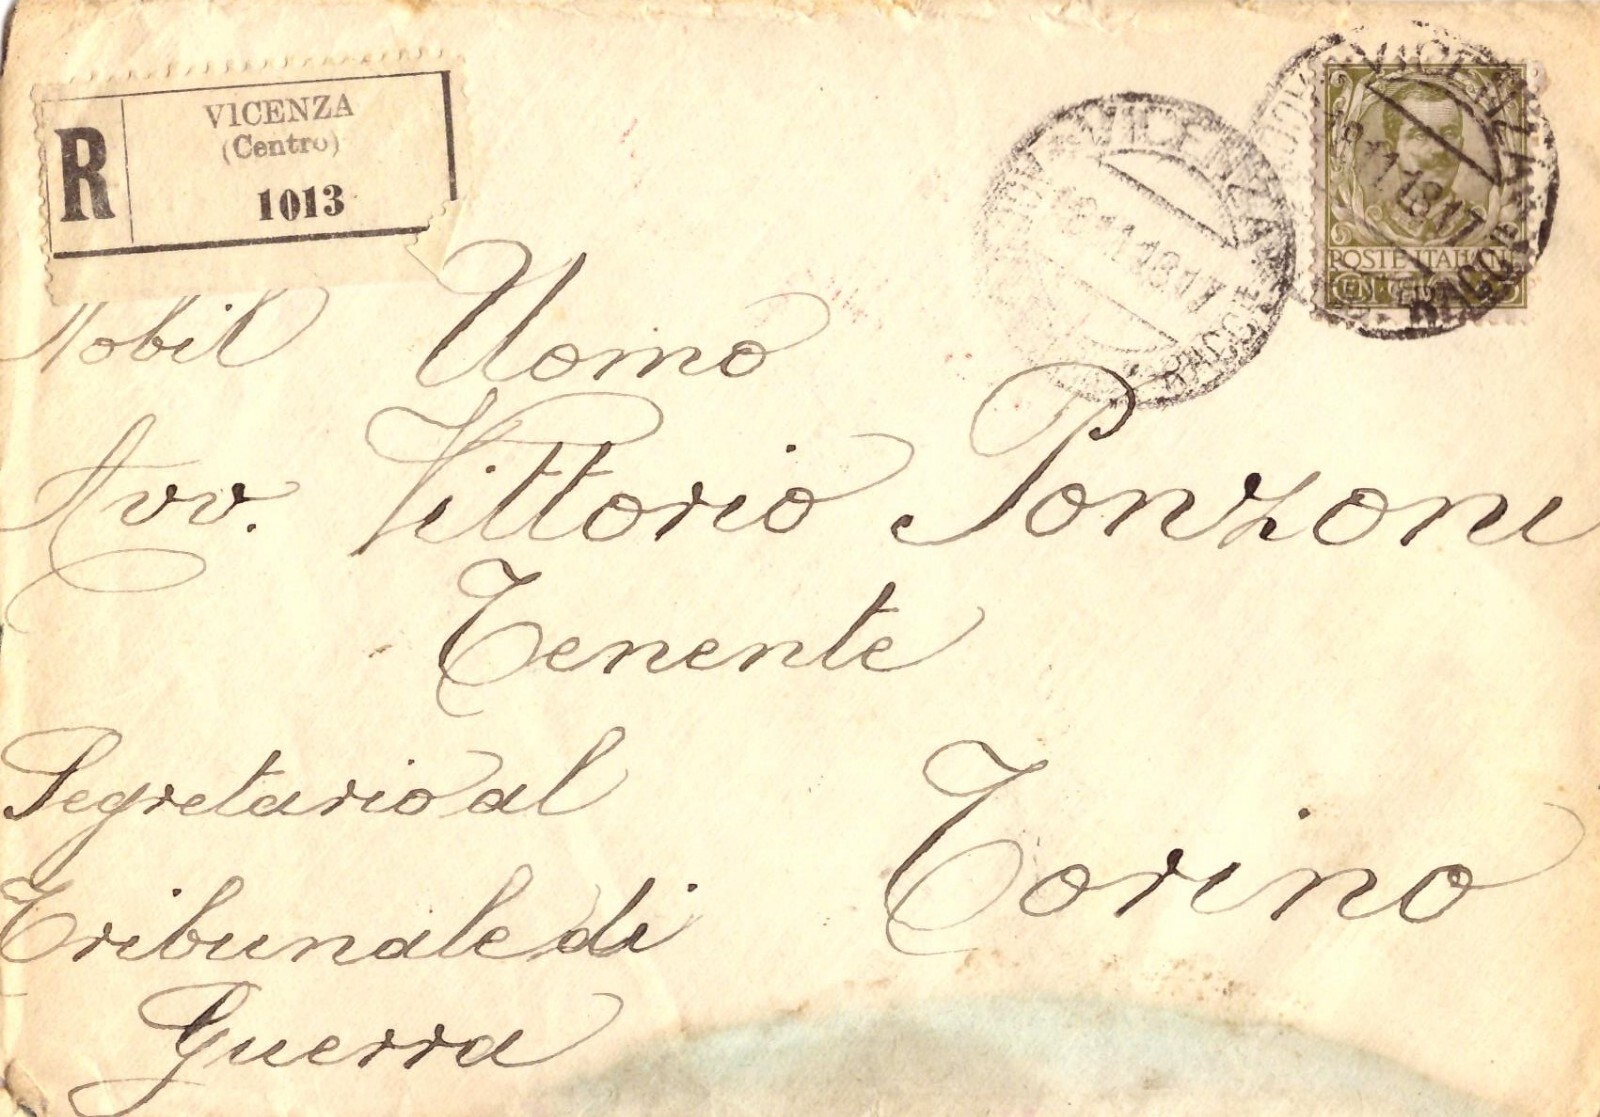 R
VICENZA
(Centro)
1013
VICENZA
18.11.18.17
RACCOM
VICENZA
18.11.18.17
RACCOM
POSTE ITALIANE
CEN
Nobil Uomo
Avv. Vittorio Ponzoni
Tenente
Segretario al
Tribunale di
Guerra
Torino